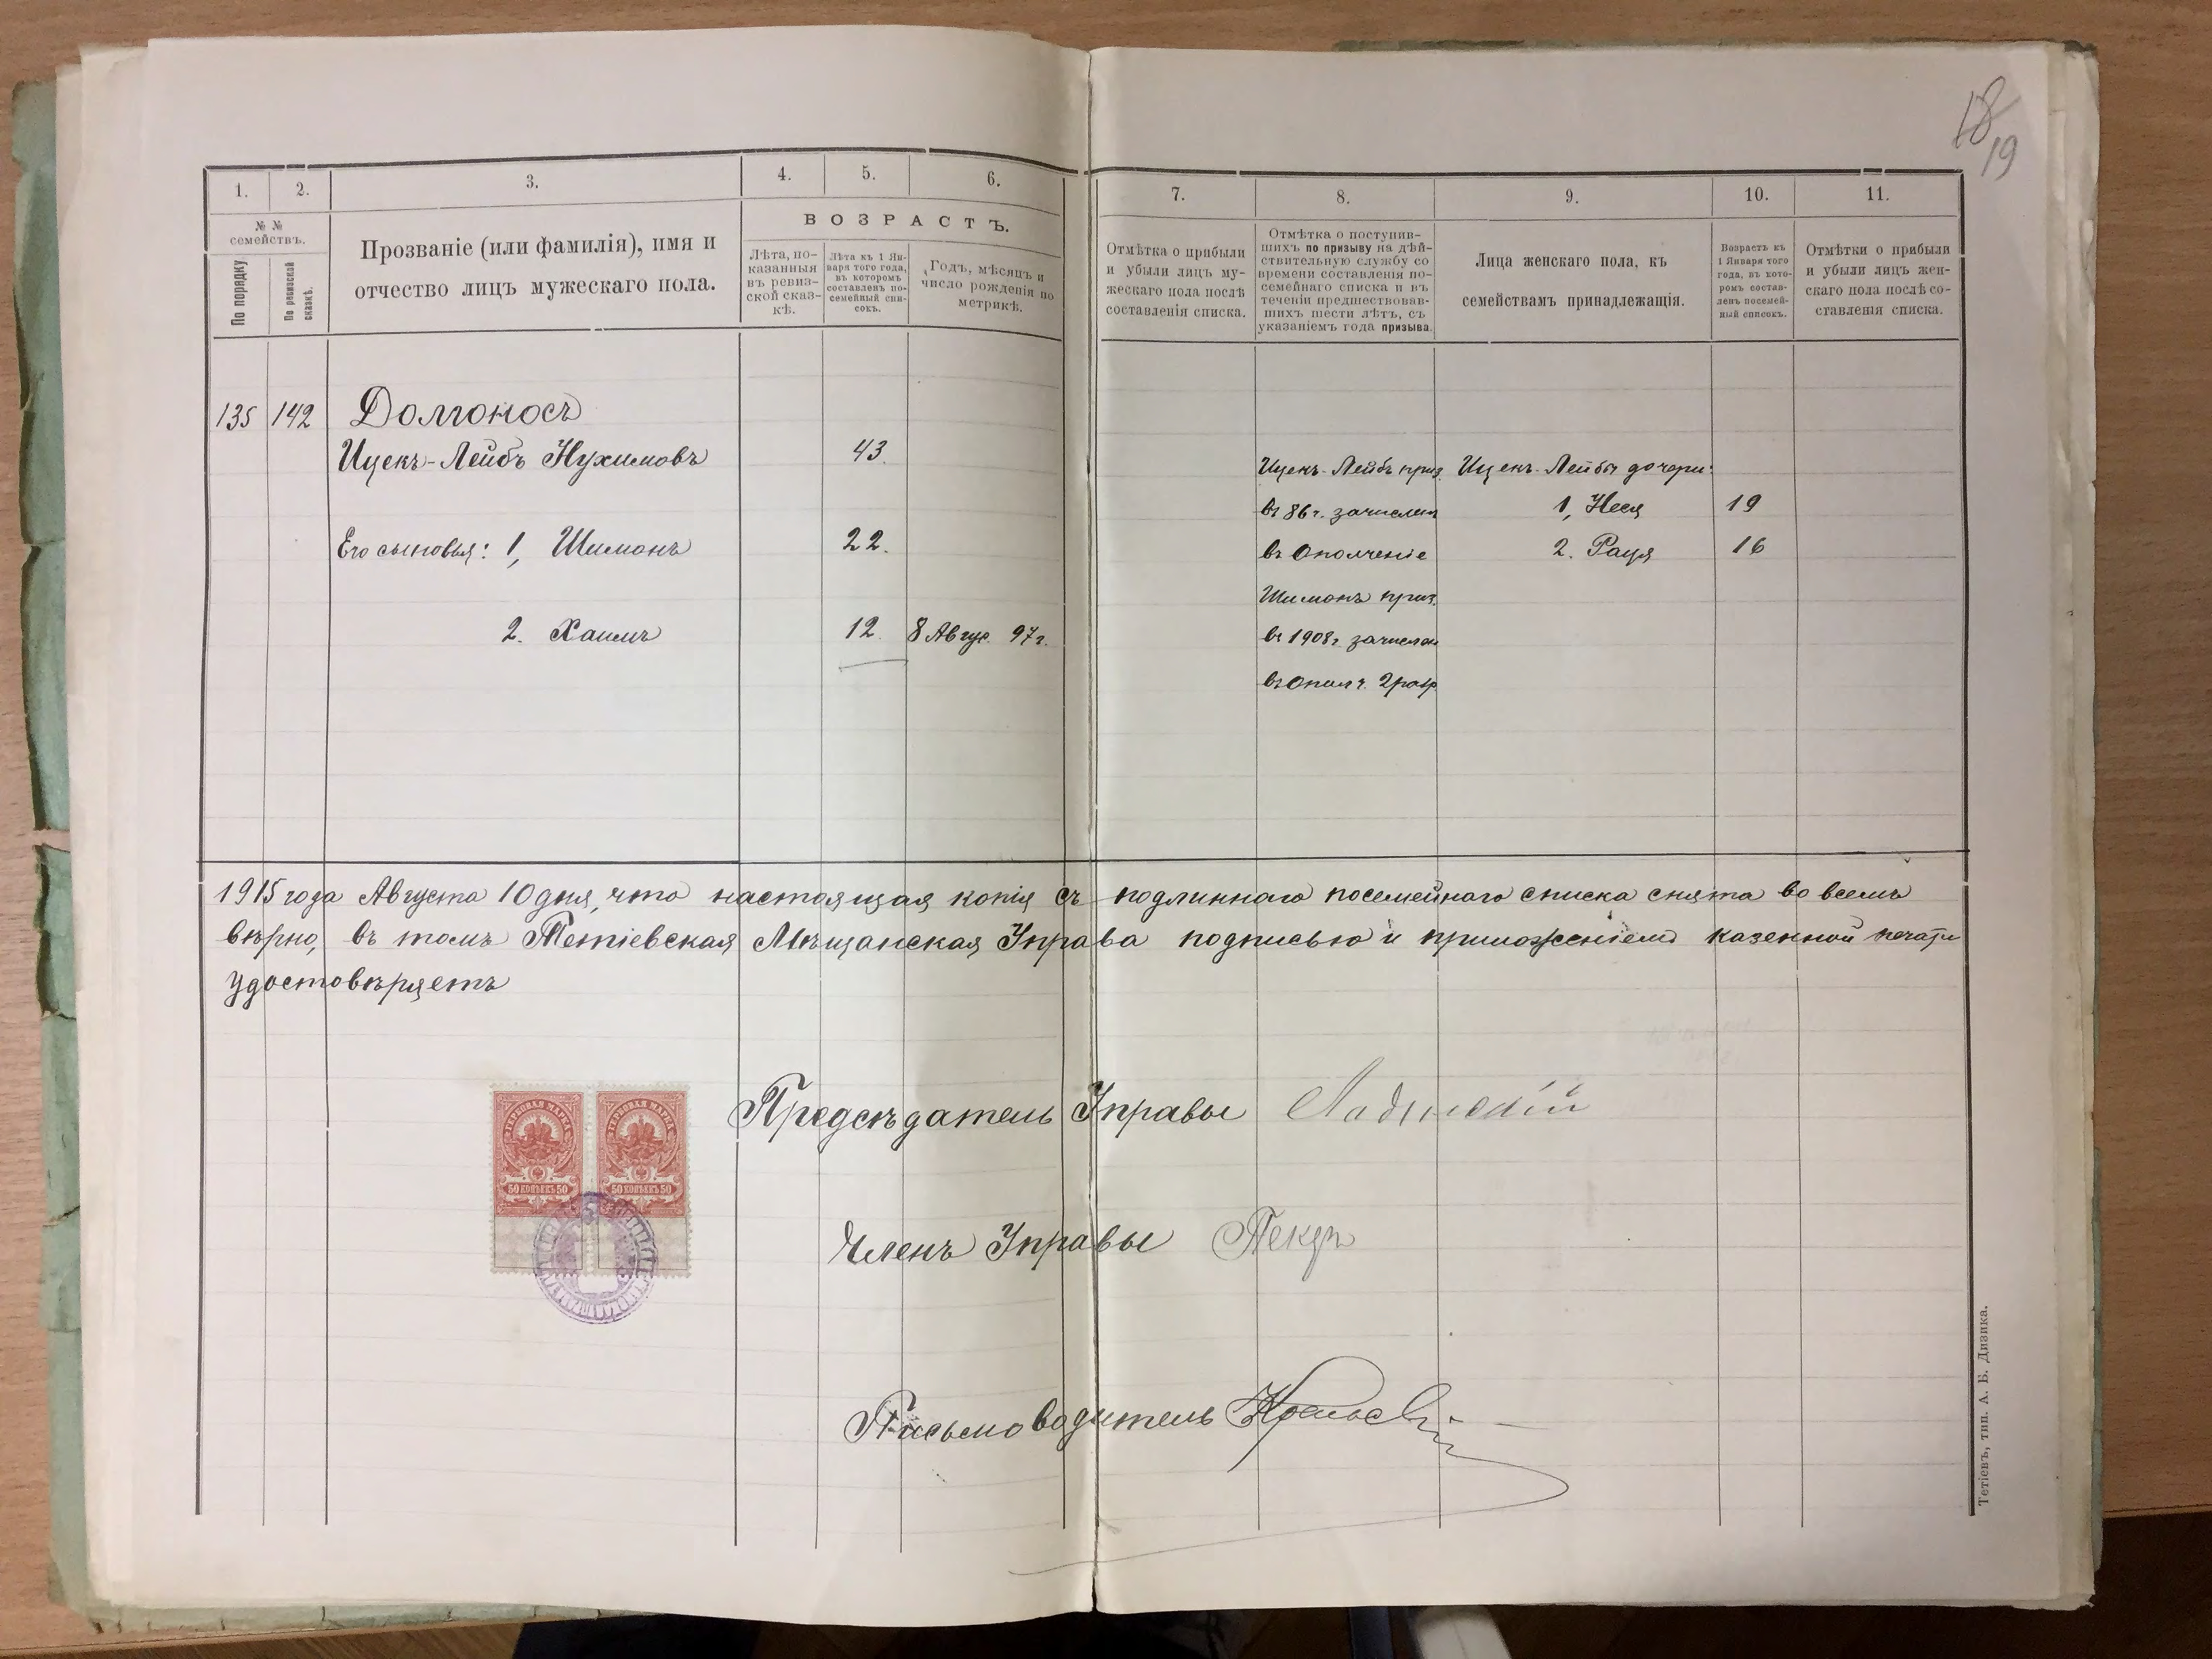 18
19
1.
2.
3.
4.
5.
6.
7.
8.
9.
10.
11.
№ №
семействъ.
По порядку
По ревизской
сказкѣ.
Прозваніе (или фамилія), имя и
отчество лицъ мужескаго пола.
ВОЗРАСТЪ.
Лѣта, по-
казанныя
въ ревиз-
ской сказ-
кѣ.
Лѣта къ 1 Ян-
варя того года,
въ которомъ
составленъ по-
семейный спи-
сокъ.
Годъ, мѣсяцъ и
число рожденія по
метрикѣ.
Отмѣтка о прибыли
и убыли лицъ му-
жескаго пола послѣ
составленія списка.
Отмѣтка о поступив-
шихъ по призыву на дѣй-
ствительную службу со
времени составленія по-
семейнаго списка и въ
теченіи предшествовав-
шихъ шести лѣтъ, съ
указаніемъ года призыва.
Лица женскаго пола, къ
семействамъ принадлежащія.
Возрастъ къ
1 Января того
года, въ кото-
ромъ состав-
ленъ посемей-
ный списокъ.
Отмѣтки о прибыли
и убыли лицъ жен-
скаго пола послѣ со-
ставленія списка.
135 142 Долгоносъ
Ицекъ-Лейбъ Нухимовъ 43.
Его сыновья: 1, Шимонъ 22.
2. Хаимъ 12. 8 Авгус. 97 г.
Ицекъ-Лейбъ приз.
въ 86 г. зачислен
въ Ополченіе
Шимонъ приз.
въ 1908 г. зачислен
въ Ополч. 2 разр.
Ицекъ-Лейбы дочери:
1, Неся 19
2. Рация 16
1915 года Августа 10 дня, что настоящая копія съ подлиннаго посемейнаго списка снята во всемъ
вѣрно, въ томъ Тетіевская Мѣщанская Управа подписью и приложеніемъ казенной печати
удостовѣряетъ
ГЕРБОВАЯ МАРКА
50 КОПѢЕКЪ 50
ГЕРБОВАЯ МАРКА
50 КОПѢЕКЪ 50
Предсѣдатель Управы
Членъ Управы
Письмоводитель
Тетіевъ, тип. А. Б. Дизика.